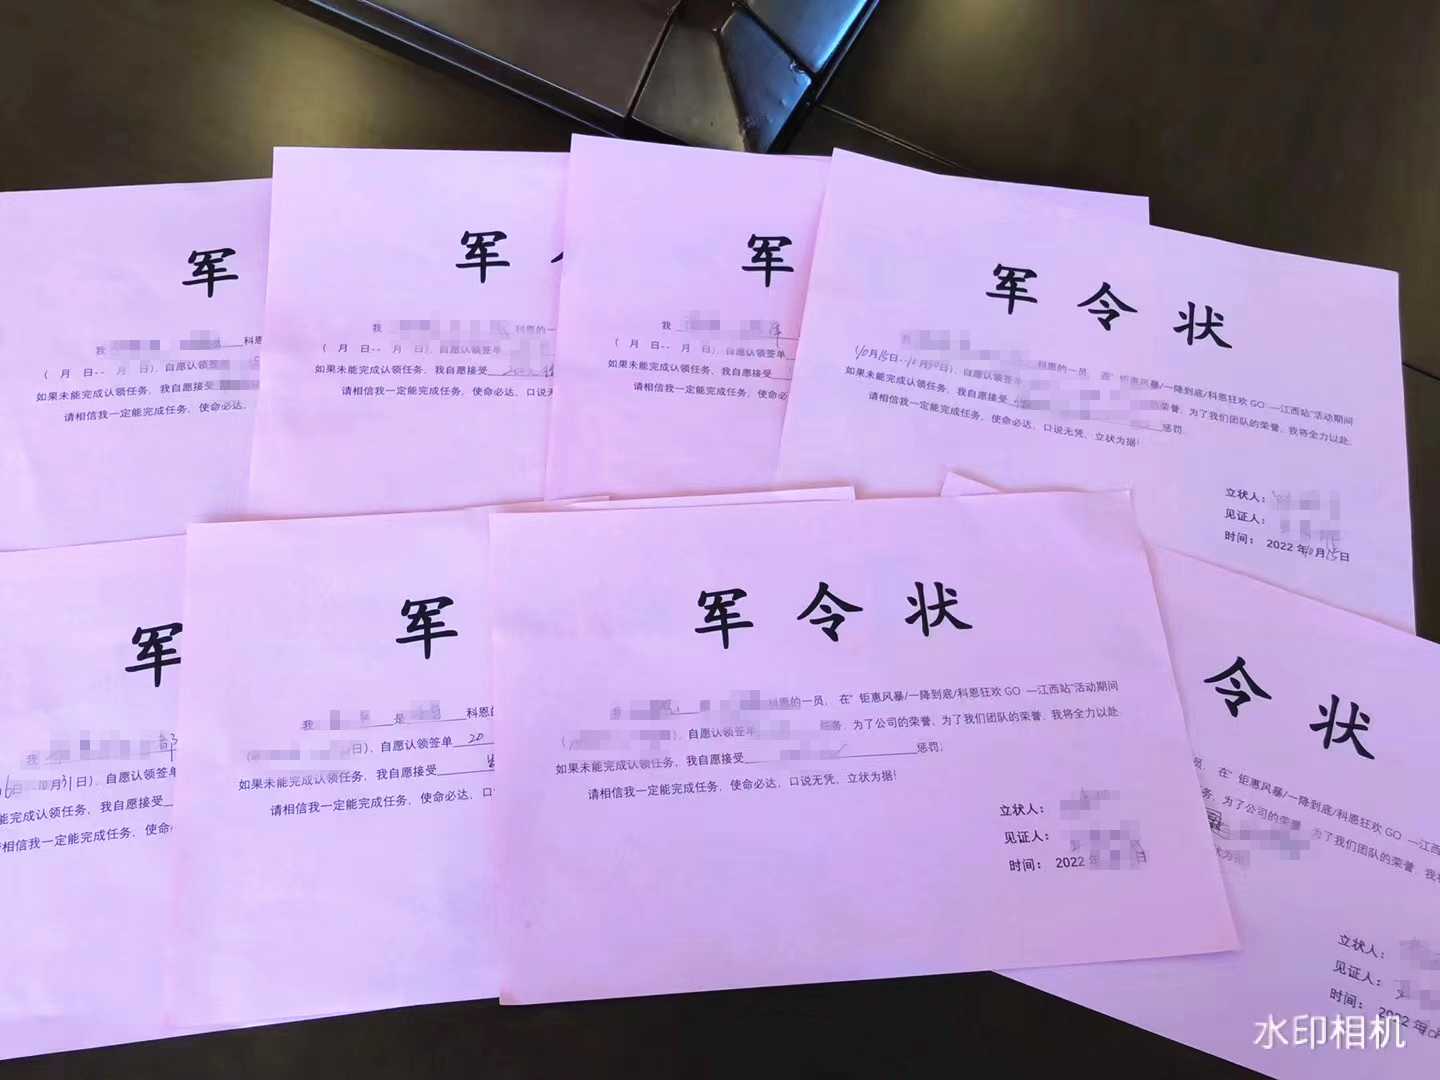 军
我
科恩
( 月 日-- 月 日)、自愿认领签单
如果未能完成认领任务、我自愿接受
请相信我一定能完成任务，使命必达，
军
我
科恩的一
( 月 日-- 月 日)、自愿认领签单
如果未能完成认领任务、我自愿接受
请相信我一定能完成任务，使命必达，口说无
军
我
( 月 日-- 月 日)、自愿认领签单
如果未能完成认领任务、我自愿接受
请相信我一定能完成任务，使命必
军令状
科恩的一员， 在“ 钜惠风暴/一降到底/科恩狂欢 GO —江西站”活动期间
10月15日--10月30日)、自愿认领签单
的荣誉、为了我们团队的荣誉，我将全力以赴、
如果未能完成认领任务、我自愿接受
惩罚，
请相信我一定能完成任务，使命必达，口说无凭，立状为据！
立状人：
见证人：
时间： 2022 年10月15日
军
我
日--10月31日)、自愿认领签单
能完成认领任务、我自愿接受
相信我一定能完成任务，使命
军
我 是 科恩
日)、自愿认领签单 20
如果未能完成认领任务、我自愿接受
请相信我一定能完成任务，使命必达，口
军令状
我
科恩的一员， 在“ 钜惠风暴/一降到底/科恩狂欢 GO —江西站”活动期间
( 日)、自愿认领签单
任务、为了公司的荣誉、为了我们团队的荣誉、我将全力以赴
如果未能完成认领任务、我自愿接受
惩罚；
请相信我一定能完成任务，使命必达，口说无凭，立状为据！
立状人：
见证人：
时间： 2022 年 日
令状
员， 在“ 钜惠风暴/一降到底/科恩狂欢 GO —江西
务，为了公司的荣誉、为了我们团队的荣誉，我将
状为据
立状人：
见证人：
时间：
2022 年
水印相机